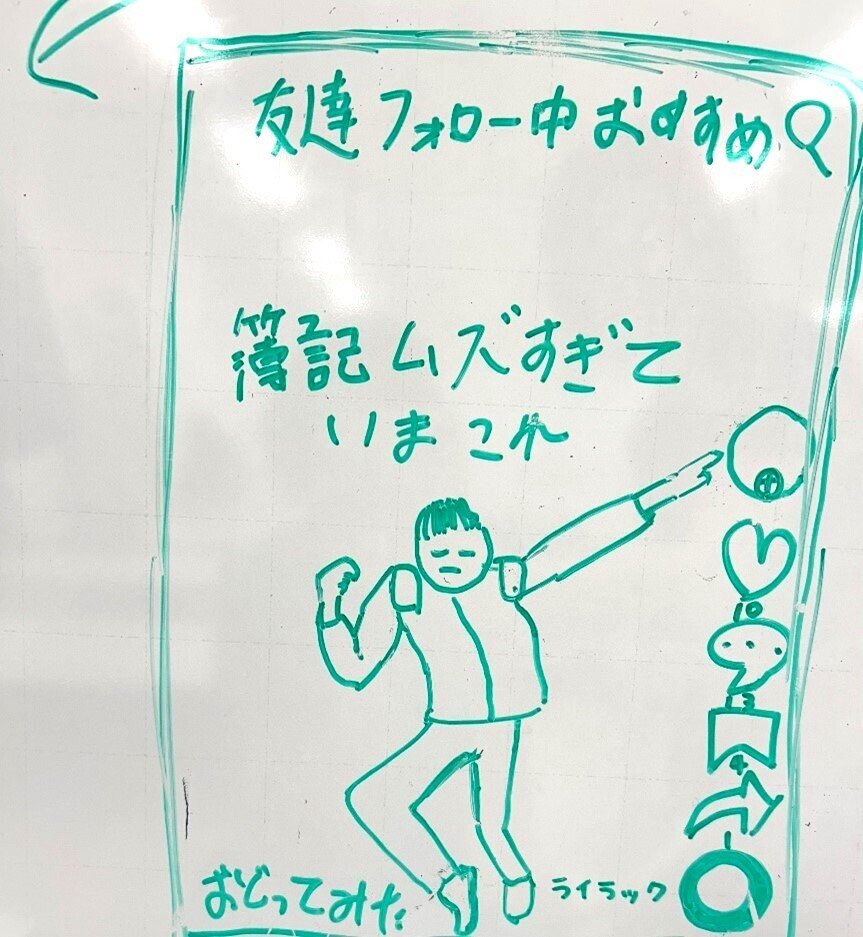 友達 フォロー中 おすすめ
簿記ムズすぎて
いまこれ
10
13
4
1
おどってみた
ライラック